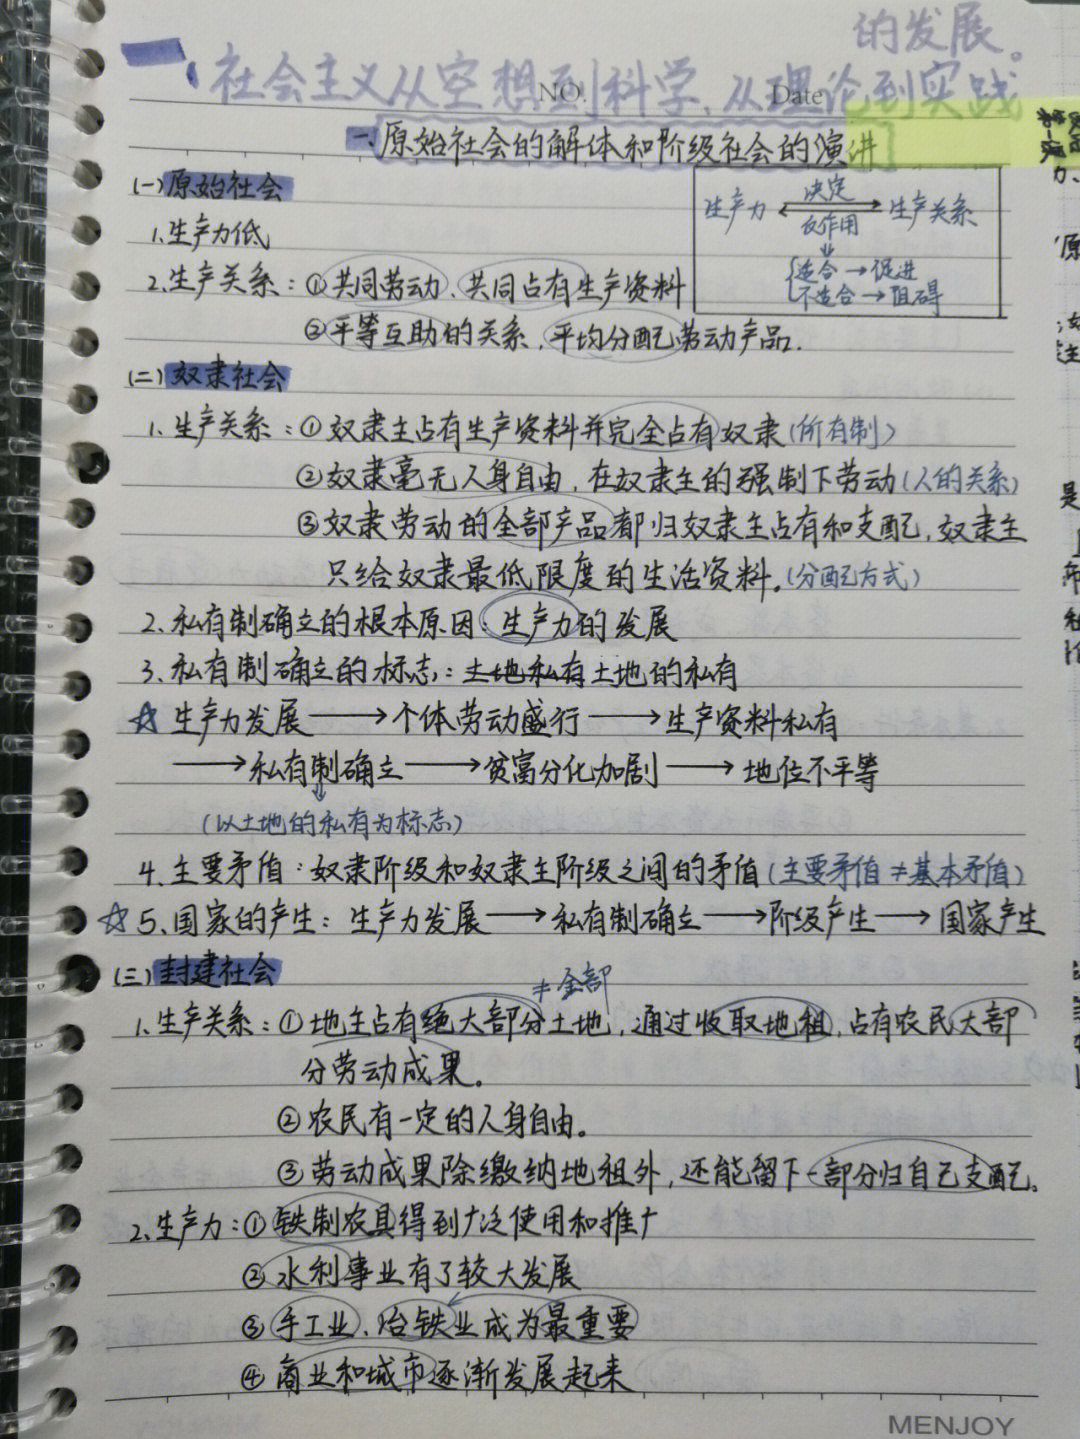 的发展。
一、社会主义从空想到科学、从理论到实践
NO. Date
一、原始社会的解体和阶级社会的演进
(一)原始社会
生产力 决定 生产关系
反作用
适合→促进
不适合→阻碍
1.生产力低
2.生产关系:①共同劳动、共同占有生产资料
②平等互助的关系,平均分配劳动产品.
(二)奴隶社会
1.生产关系:①奴隶主占有生产资料并完全占有奴隶(所有制)
②奴隶毫无人身自由,在奴隶主的强制下劳动(人的关系)
③奴隶劳动的全部产品都归奴隶主占有和支配,奴隶主
只给奴隶最低限度的生活资料。(分配方式)
2.私有制确立的根本原因:生产力的发展
3.私有制确立的标志:土地私有土地的私有
☆生产力发展→个体劳动盛行→生产资料私有
→私有制确立→贫富分化加剧→地位不平等
(以土地的私有为标志)
4.主要矛值:奴隶阶级和奴隶主阶级之间的矛值(主要矛值≠基本矛值)
☆5.国家的产生:生产力发展→私有制确立→阶级产生→国家产生
(三)封建社会
≠全部
1.生产关系:①地主占有绝大部分土地,通过收取地租,占有农民大部
分劳动成果。
②农民有一定的人身自由。
③劳动成果除缴纳地租外,还能留下一部分归自己支配。
2.生产力:①铁制农具得到广泛使用和推广
②水利事业有了较大发展
③手工业、冶铁业成为最重要
④商业和城市逐渐发展起来
MENJOY